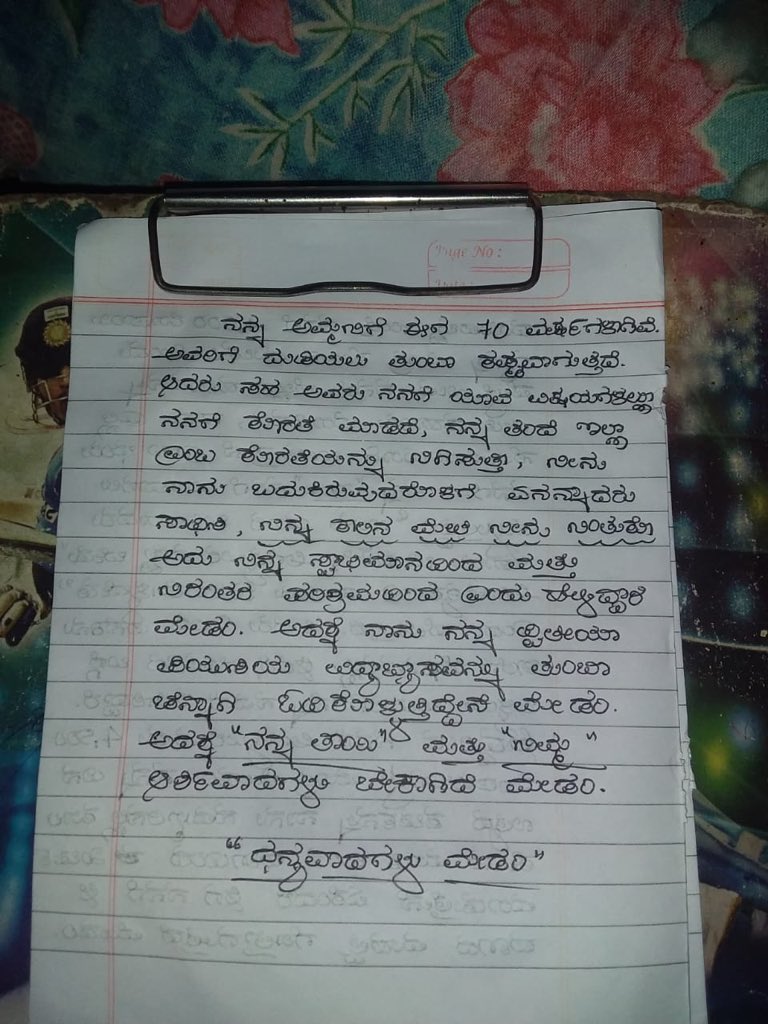 Page No:
ನನ್ನ ಅಮ್ಮನಿಗೆ ಈಗ 70 ವರ್ಷಗಳಾಗಿವೆ.
ಅವರಿಗೆ ದುಡಿಯಲು ತುಂಬಾ ಕಷ್ಟವಾಗುತ್ತದೆ.
ಆದರು ಸಹ ಅವರು ನನಗೆ ಯಾವ ವಿಷಯಗಳಲ್ಲೂ
ನನಗೆ ಕೊರತೆ ಮಾಡದೆ, ನನ್ನ ತಂದೆ ಇಲ್ಲಾ
ಎಂಬ ಕೊರತೆಯನ್ನು ನಿಗಿಸುತ್ತಾ, ನೀನು
ನಾನು ಬದುಕಿರುವುದರೊಳಗೆ ಏನನ್ನಾದರು
ಸಾಧಿಸಿ, ನಿನ್ನ ಕಾಲಿನ ಮೇಲೆ ನೀನು ನಿಂತುಕೊ
ಅದು ನಿನ್ನ ಸ್ವಾಭಿಮಾನದಿಂದ ಮತ್ತು
ನಿರಂತರ ಪರಿಶ್ರಮದಿಂದ ಎಂದು ಹೇಳಿದ್ದಾರೆ
ಮೇಡಂ. ಅದಕ್ಕೆ ನಾನು ನನ್ನ ದ್ವಿತೀಯಾ
ಪಿಯುಸಿಯ ವಿದ್ಯಾಭ್ಯಾಸವನ್ನು ತುಂಬಾ
ಚೆನ್ನಾಗಿ ಓದಿಕೊಳ್ಳುತ್ತಿದ್ದೇನೆ ಮೇಡಂ.
ಅದಕ್ಕೆ "ನನ್ನ ತಾಯಿ" ಮತ್ತು "ನಿಮ್ಮ"
ಆರ್ಶಿವಾದಗಳು ಬೇಕಾಗಿದೆ ಮೇಡಂ.
"ಧನ್ಯವಾದಗಳು ಮೇಡಂ"